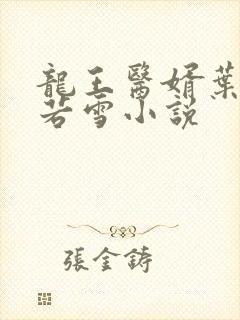 龍王醫婿葉
若雪小説
張金鋳